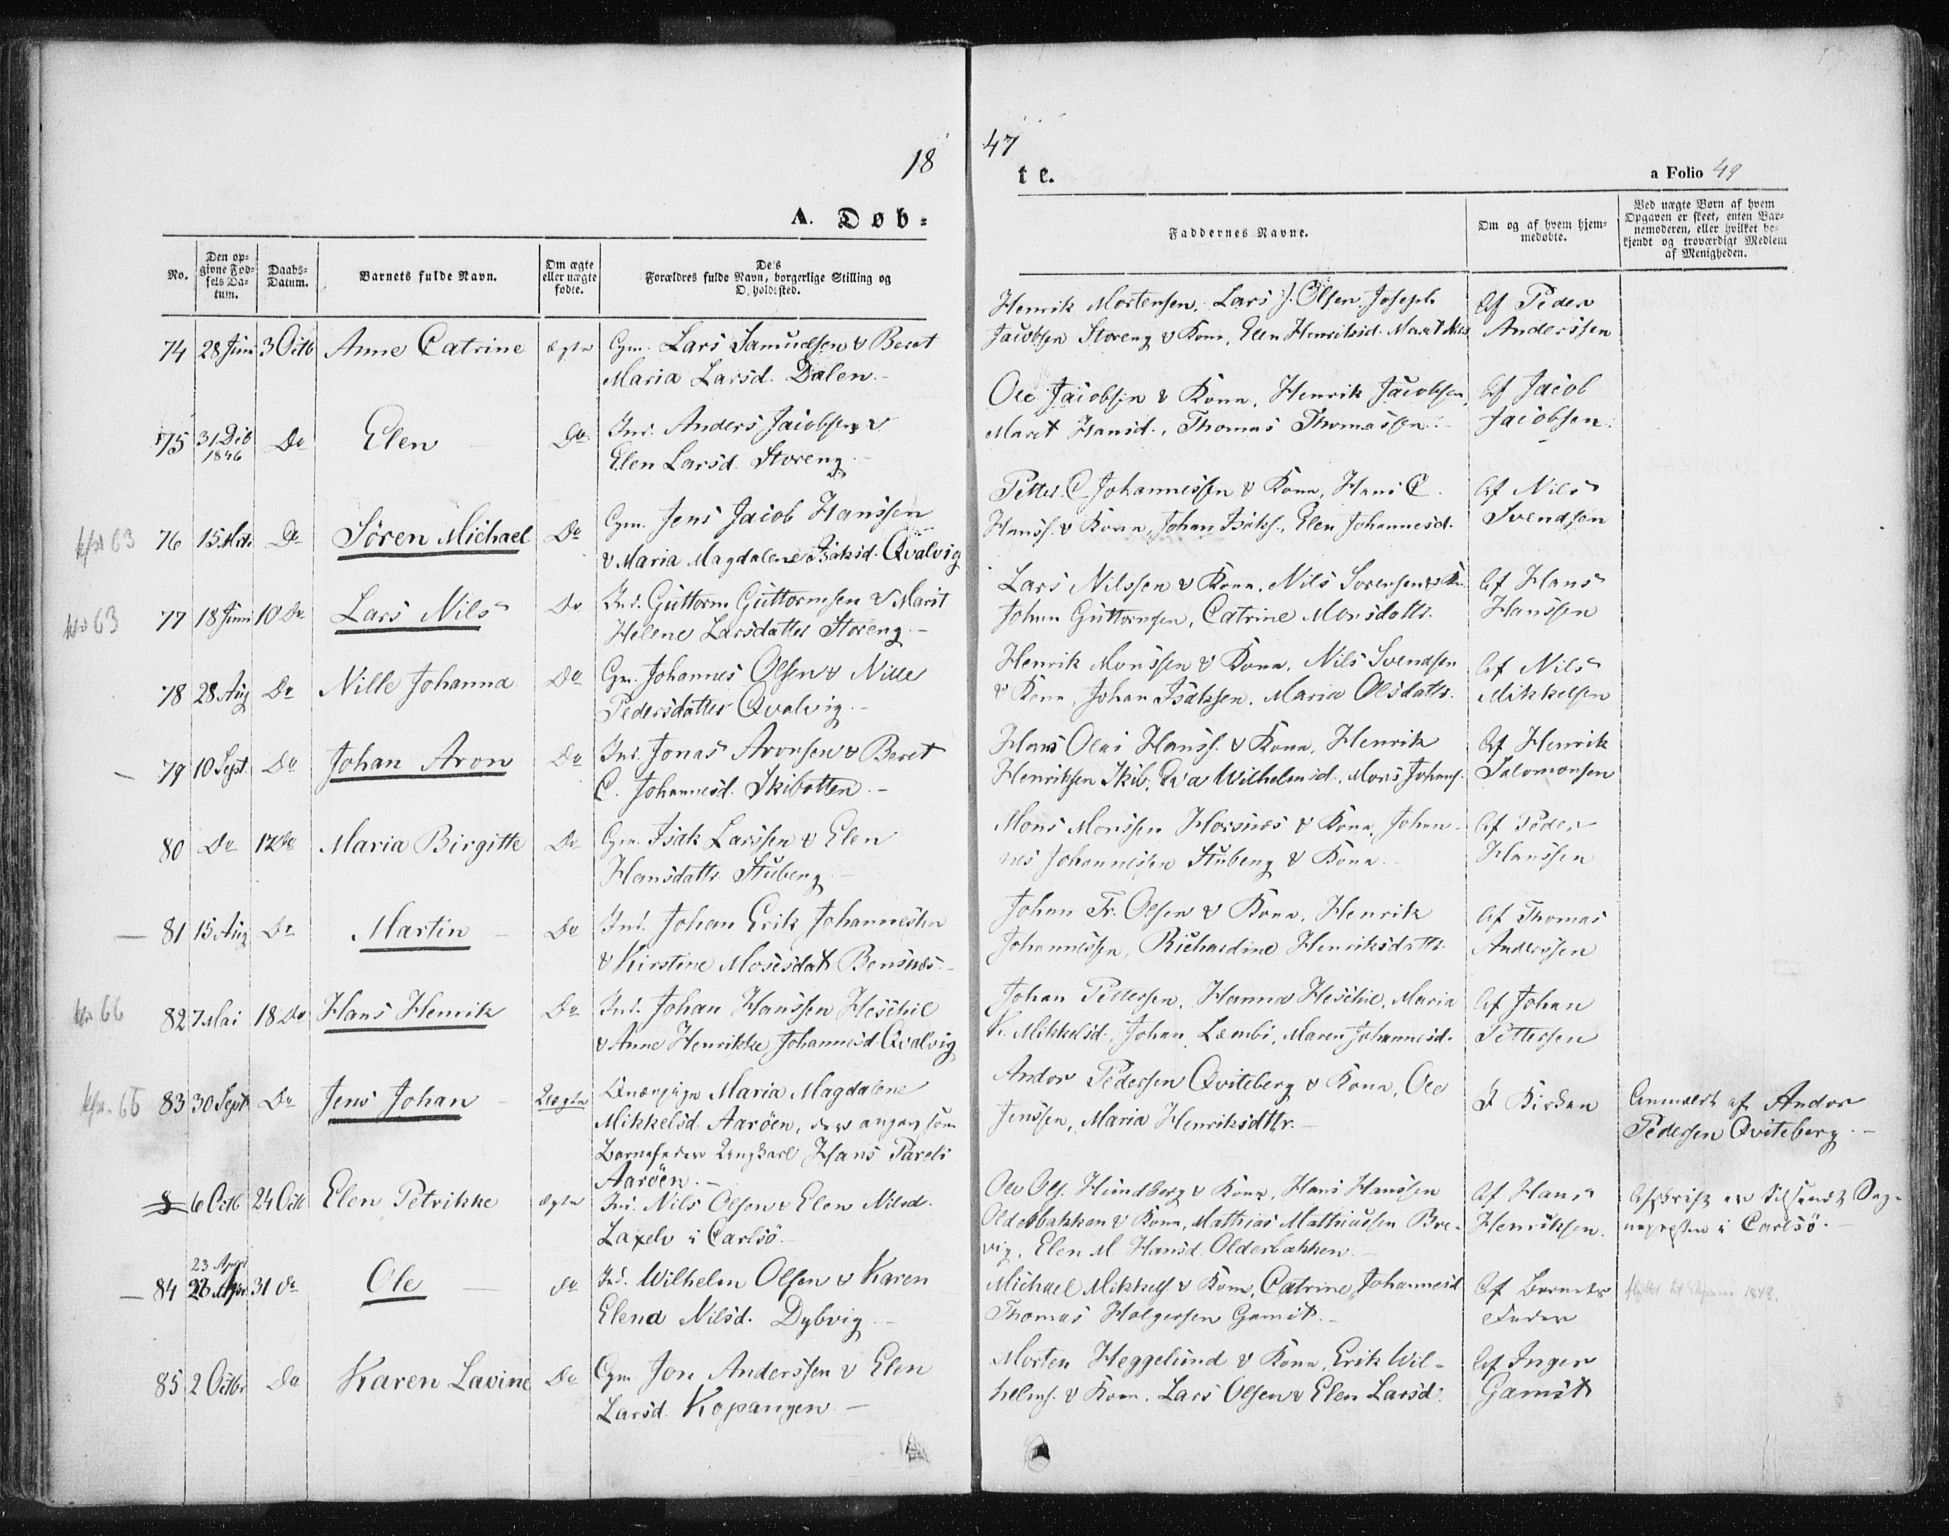 18
47
A. Døb-
te.
a Folio 49
No.
Den op-
givne Fød-
sels Da-
tum.
Daabs-
Datum.
Barnets fulde Navn.
Om ægte
eller uægte
fødte.
De's
Forældres fulde Navn, borgerlige Stilling og
O, holdssted.
Faddernes Navne.
Om og af hvem hjem-
medøbte.
Ved uægte Børn af hvem
Opgaven er skeet, enten Bar-
nemoderen, eller hvilket be-
kjendt og troværdigt Medlem
af Menigheden.
74 28 Juni 3 Octb Anne Catrine ægte Gm. Lars Samuelsen & Beret
Maria Larsd. Dalen.
Henrik Mortensen, Lars J. Olsen, Joseph
Jacobsen Storeng & Kone, Elen Henriksd.
Af Peder
Anderssen
75 31 Dcb 1846 Do Elen Do Ind. Anders Jacobsen &
Elen Larsd. Storeng
Ole Jacobsen & Kone, Henrik Jacobsen,
Maret Hansd., Thomas Thomassen
Af Jacob
Jacobsen
63 76 15 Do Sören Michael Do Gm. Jens Jacob Hanssen
& Maria Magdalene Isaksd. Qvalvig
Petter C Johannessen & Kone, Hans C
Hanss. & Kone, Johan Isaks., Elen Johannesd.
Af Nils
Svendsen
63 77 18 Juni 10 Do Lars Nils Do Ind. Guttorm Guttormsen & Marit
Helene Larsdatter Storeng
Lars Nilssen & Kone, Nils Sorensen
Johan Guttormsen, Catrine Monsdattr.
Af Hans
Hanssen
78 28 Aug Do Nille Johanna Do Gm. Johannes Olsen & Nille
Pedersdatter Qvalvig
Henrik Monssen & Kone, Nils Svendsen
& Kone, Johan Isaksen, Maria Olsdattr.
Af Nils
Mikkelsen
79 10 Sept. Do Johan Aron Do Ind. Jonas Aronsen & Beret
C. Johannesd. Skibotten
Hans Olai Hanss. & Kone, Henrik
Henriksen Skib, Eva Wilhelmsd., Mons Johans.
Af Henrik
Salomonsen
80 Do 17 Do Maria Birgitte Do Gm. Isak Larssen & Elen
Hansdattr. Stubeng
Mons Monssen Horsnæs & Kone, Johan-
nes Johannessen Stubeng & Kone
Af Peder
Hanssen
81 15 Aug Do Martin Do Ind. Johan Erik Johannessen
& Kirstine Mosesdat Bensnæs
Johan Fr. Olsen & Kone, Henrik
Johannessen, Richardine Henriksdattr.
Af Thomas
Anderssen
66 82 7 Mai 18 Do Hans Henrik Do Ind. Johan Hanssen Heschie
& Anne Henrikke Johannesd. Qvalvig
Johan Pettersen, Hanna Heschie, Maria
K. Mikkelsd., Johan Lembi, Maren Johannesd.
Af Johan
Pettersen
83 30 Sept Do Jens Johan Uægte Maria Magdalene
Mikkelsd. Aaröen, der angav som
Barnefader Ungkarl Hans Parels
Aaröen
Andor Pedersen Qviteberg & Kone, Ole
Jenssen, Maria Henriksdttr.
I Kirken
Anmeldt af Andor
Pedersen Qviteberg
6 Octb 24 Octb Elen Petrikke ægte Ind. Nils Olsen & Elen Nilsd.
Laxelv i Carlsö
Ole Ols. Hundberg & Kone, Hans Hanssen
Olderbakken & Kone, Mathias Mathiassen Bre-
vig, Elen M. Hansd. Olderbakken
Af Hans
Henriksen
Afskrift er tilsendt Sog-
nepresten i Carlsö.
23 April
84 31 Do Ole do Ind. Wilhelm Olsen & Karen
Elena Nilsd. Dybvig
Michael Mikkels. & Kone, Catrine Johannesd
Thomas Holgersen Gamst
Af Barnets
Fader
1848.
85 2 Octbr Do Karen Lavine Do Gm Jon Anderssen & Elen
Larsd. Kopangen
Morten Heggelund & Kone, Erik Wil-
helms. & Kone, Lars Olsen & Elen Larsd.
Af Inger
Gamst